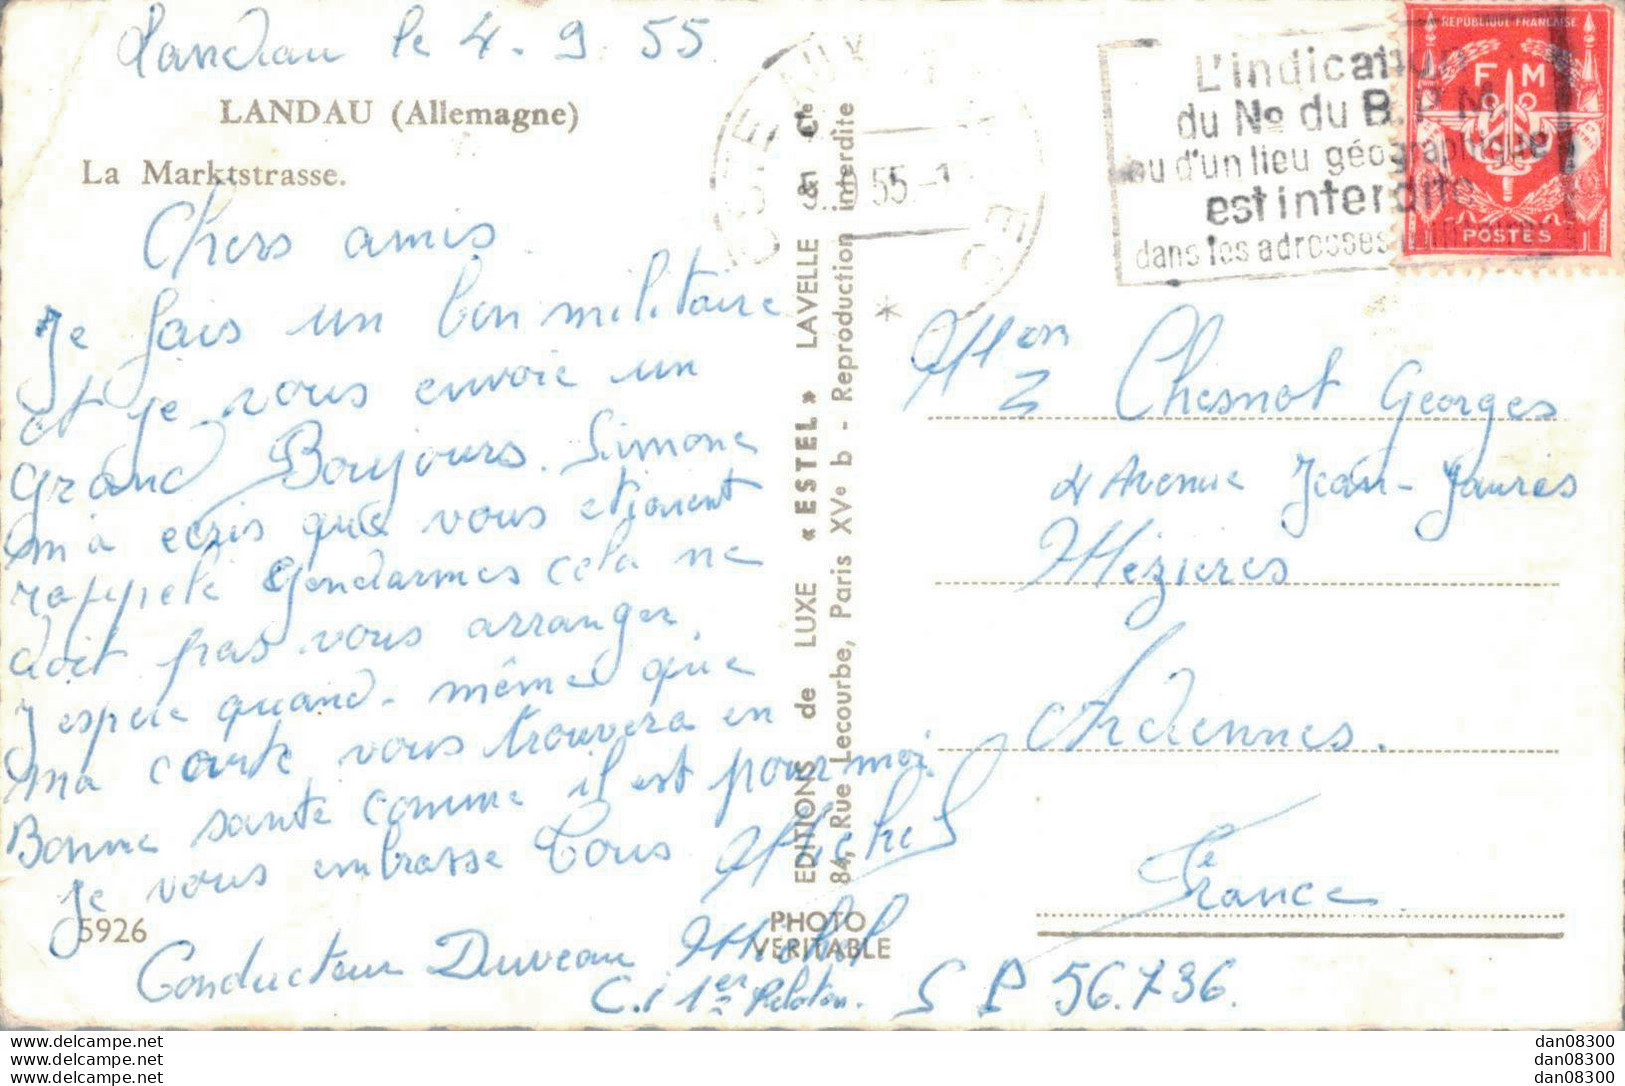 Landau le 4-9 55
LANDAU (Allemagne)
La Marktstrasse.
Chers amis.
Je fais un bon militaire
et je vous envoie un
grand Boujours. Simone
m'a ecris que vous etionent
rappelé Gendarmes cela ne
doit pas vous arranger.
J'espere quand-même que
ma carte vous trouvera en
Bonne santé comme il est pour moi.
Je vous embrasse Tous Michel
5926
Conducteur Duveau Michel
C.i 1er Peloton. S P 56.736.
EDITIONS de LUXE « ESTEL » LAVELLE & Cie
84, Rue Lecourbe, Paris XVe b - Reproduction interdite
PHOTO
VERITABLE
55
L'indication
du No du B.P.M.
ou d'un lieu géographique
est interdite
dans les adresses
REPUBLIQUE FRANCAISE
F M
POSTES
Mon
Chesnot Georges
4 Avenue Jean-Jaurès
Mézieres
Ardennes.
France
dan08300
dan08300
dan08300
dan08300
dan08300
dan08300